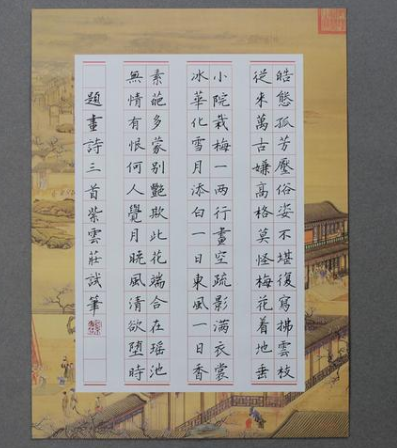 皓態孤芳壓俗姿不堪復寫拂雲枝
從来萬古嫌高格莫怪梅花着地垂
小院栽梅一兩行畫空疏影满衣裳
冰華化雪月添白一日東風一日香
素葩多蒙别艷欺此花端合在瑶池
無情有恨何人覺月曉風清欲墮時
題畫詩三首紫雲莊試筆